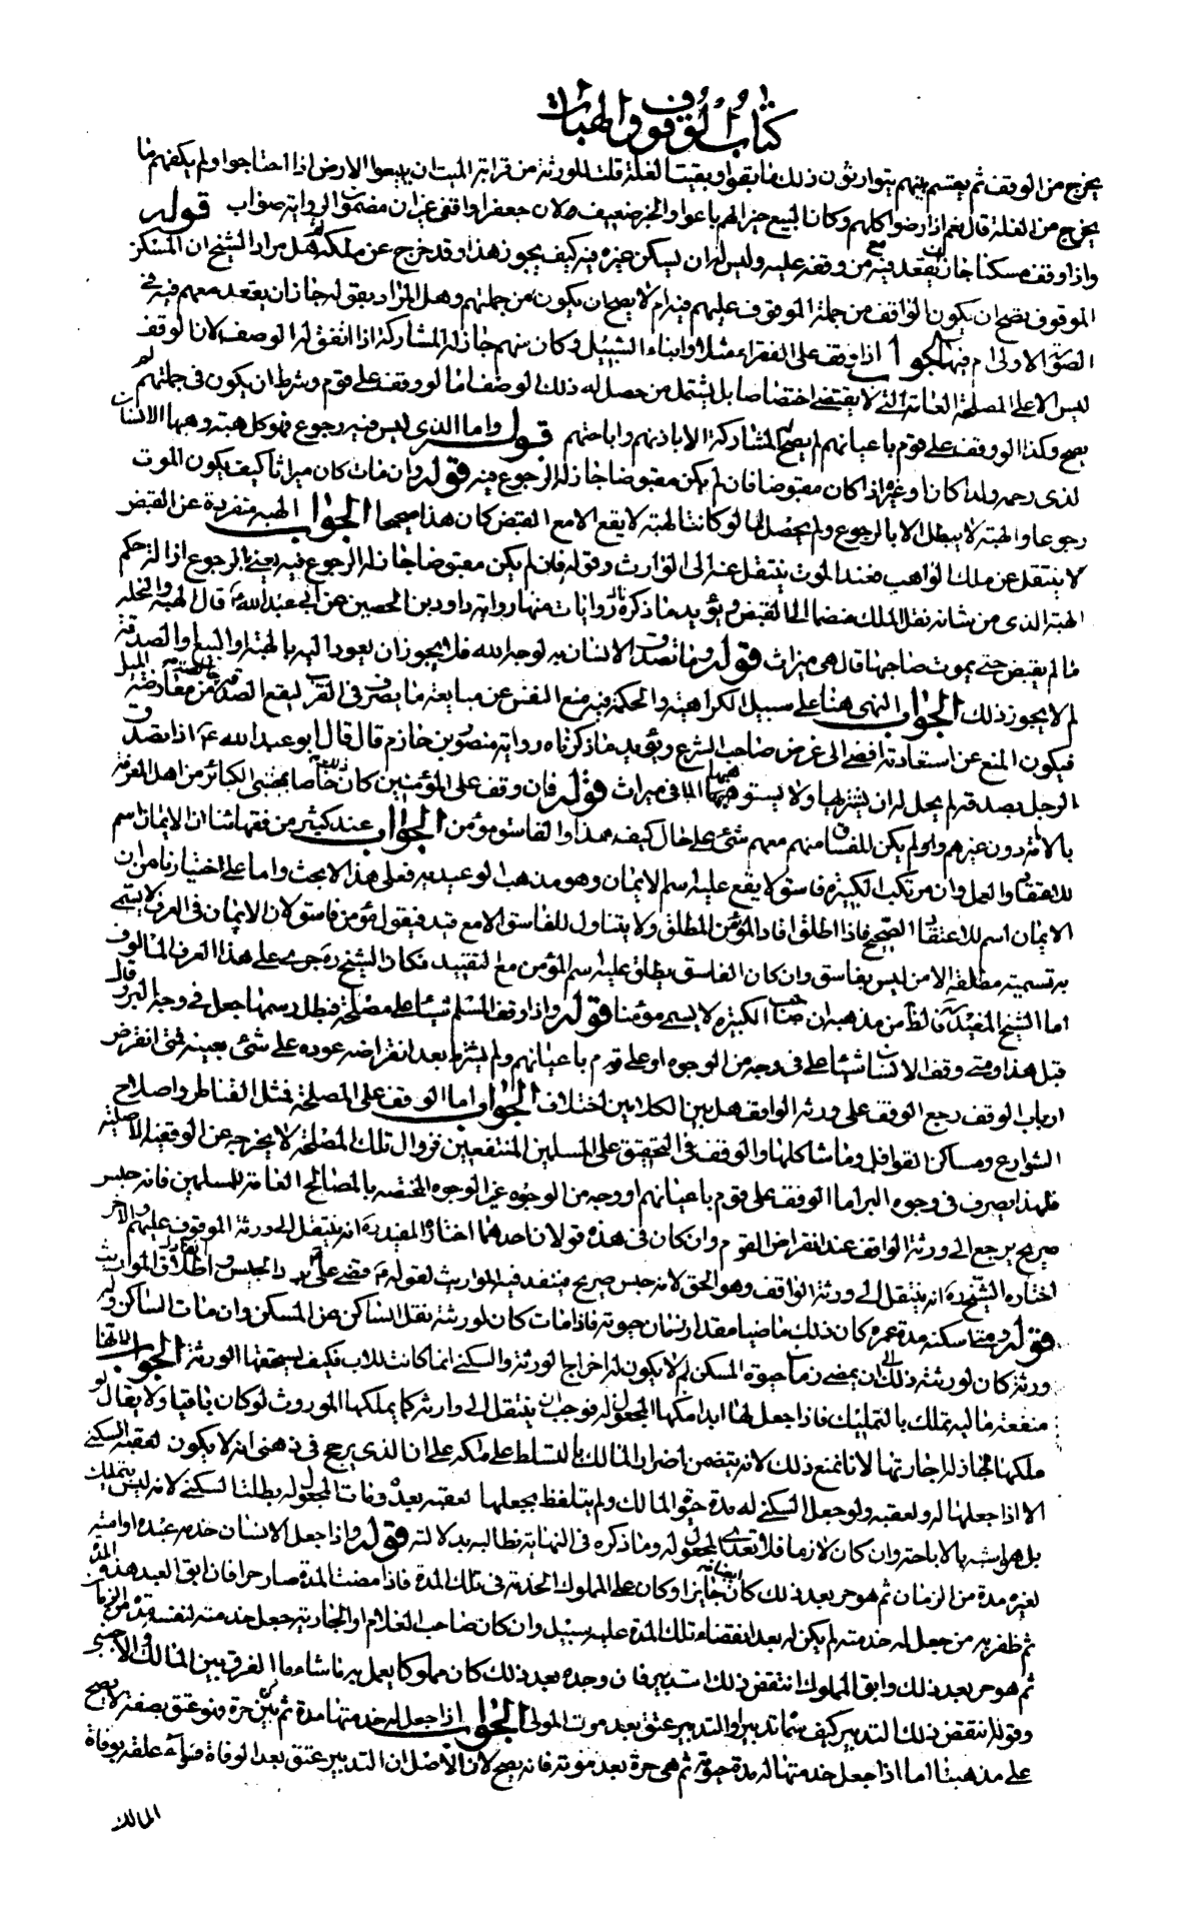 كتاب الوقوف والهبات
يخرج من الوقف ثم يقسم بينهم يتوارثون ذلك ما بقوا وبقيت الغلة قلت للورثة من قرابة الميت ان يبيعوا الارض اذا احتاجوا ولم يكفهم ما
يخرج من الغلة قال نعم اذا رضوا كلهم وكان البيع خيرا لهم باعوا والخبر ضعيف لان جعفرا واقفى غير ان مضمون الرواية صواب قوله
واذا وقف مسكنا جاز ان يقعد فيه مع من وقفه عليه وليس له ان يسكن غيره فيه كيف يجوز هذا وقد خرج عن ملكه وهل مراد الشيخ ان المسكن
الموقوف يصح ان يكون الواقف من جملة الموقوف عليهم فيه ام لا يصح ان يكون من جملتهم وهل المراد بقوله جاز ان يقعد معهم فيه في
الصورة الاولى ام فيهما الجواب اذا وقف على الفقراء مثلا وابناء السبيل وكان منهم جاز له المشاركة اذا اتفق له الوصف لان الوقف
ليس الا على المصلحة العامة التي لا يقتضي اختصاصا بل يشتمل من حصل له ذلك الوصف اما لو وقف على قوم وشرط ان يكون في جملتهم لم
يصح وكذا لو وقف على قوم باعيانهم لم يصح المشاركة الا باذنهم واباحتهم قوله واما الذى ليس فيه رجوع فهو كل هبة وهبها الانسان
لذى رحمه ولدا كان او غيره اذا كان مقبوضا فان لم يكن مقبوضا جاز له الرجوع فيه قوله وان مات كان ميراثا كيف يكون الموت
رجوعا والهبة لا يبطل الا بالرجوع ولم يحصل اما لو كانت الهبة لا يقع الا مع القبض كان هذا صحيحا الجواب الهبة منفردة عن القبض
لا ينتقل عن ملك الواهب فعند الموت ينتقل عنه الى الوارث وقوله فان لم يكن مقبوضا جاز له الرجوع فيه يعني بالرجوع ازالة حكم
الهبة الذى من شانه نقل الملك منضما الى القبض ويؤيد ما ذكرناه روايات منها رواية داود بن الحصين عن ابي عبد الله ع قال الهبة والنحلة
ما لم يقبض حتى يموت صاحبها قال هي ميراث قوله وما تصدق الانسان به لوجه الله فلا يجوز ان يعود اليه بالهبة او البيع او الصدقة
لم لا يجوز ذلك الجواب النهى هنا على سبيل الكراهية والحكمة فيه منع النفس عن متابعة ما يصرف في القرب ليقع الصدقة من معارضة
فيكون المنع عن استعادته افضى الى غرض صاحب الشرع ويؤيد ما ذكرناه رواية منصور بن حازم قال قال ابو عبد الله ع اذا تصدق
الرجل بصدقة لم يحل له ان يشتريها ولا يستوهبها الا في ميراث قوله فان وقف على المؤمنين كان ذلك خاصا بمجتنبى الكبائر من اهل المعرفة
بالائمة دون غيرهم ولو لم يكن للفساق منهم معهم شئ على حال كيف هذا والفاسق مؤمن الجواب عند كثير من فقهائنا ان الايمان اسم
للاعتقاد والعمل وان مرتكب الكبيرة فاسق لا يقع عليه اسم الايمان وهو مذهب الوعيدية فعلى هذا لا بحث واما على اختيارنا من ان
الايمان اسم للاعتقاد الصحيح فاذا اطلق افاد المؤمن المطلق ولا يتناول للفاسق الا مع قيد فيقول مؤمن فاسق لان الايمان في العرف لا يستحق
به تسميته مطلقة الا من ليس بفاسق وان كان الفاسق يطلق عليه اسم المؤمن مع التقييد فكان الشيخ ره جرى على هذا العرف المالوف
اما الشيخ المفيد ره فالظ من مذهبه ان صاحب الكبيرة لا يسمى مؤمنا قوله واذا وقف المسلم شيئا على مصلحة فبطل رسمها جعل في وجه البر وقال
قبل هذا ومتى وقف الانسان شيئا على في وجه من الوجوه او على قوم باعيانهم ولم يشترط بعد انقراضه عوده على شئ بعينه فمتى انقرض
ارباب الوقف رجع الوقف على ورثة الواقف هل بين الكلامين اختلاف الجواب اما الوقف على المصلحة فمثل القناطر واصلاح
الشوارع ومساكن القوافل وما شاكلها والوقف في التحقيق على المسلمين المنتفعين فزوال تلك المصلحة لا يخرجه عن الوقفية الاصلية
فلهذا يصرف في وجوه البر اما الوقف على قوم باعيانهم او وجه من الوجوه غير الوجوه المختصة بالمصالح العامة للمسلمين فانه حبس
صريح يرجع الى ورثة الواقف عند انقراض القوم وان كان في هذه قولان احدهما اختاره المفيد ره انه ينتقل الى ورثة الموقوف عليهم والاخر
اختاره الشيخ ره انه ينتقل الى ورثة الواقف وهو الحق لانه حبس صريح منتقد فيه المواريث لقوله ع قضى علي ع برد الحبيس وانفاذ المواريث
قوله ومتى اسكنه مدة عمره كان ذلك ماضيا مقدار زمان حيوته فاذا مات كان لورثته نقل الساكن عن المسكن وان مات الساكن وله
ورثة كان لورثته ذلك الى ان يمضى زمان حيوة المسكن لم لا يكون له اخراج الورثة والسكنى انما كانت للاب فكيف يستحقها الورثة الجواب لانها
منفعة مالية تملك بالتمليك فاذا جعل لها ابدا ملكها المجعول له فوجب ان ينتقل الى وارثه كما يملكها الموروث لو كان باقيا ولا يقال لو
ملكها لجاز له اجارتها لانا نمنع ذلك لانه يتضمن اضرار المالك بالتسلط على ملكه على ان الذى يرجح في ذهنى انه لا يكون لعقبه السكنى
الا اذا جعلها له ولعقبه ولو جعل السكنى له مدة حيوة المالك ولم يتلفظ بجعلها لعقبه بعده فمات المجعول له بطلت السكنى لانه ليس بتمليك
بل هو اشبه بالاباحة وان كان لازما فلا تعدى المجعول له وما ذكره في النهاية نطالبه بدلالته قوله واذا جعل الانسان خدمة عبده او امته
لغيره مدة من الزمان ثم هو حر بعد ذلك كان ذلك جايزا وكان على المملوك الخدمة في تلك المدة فاذا مضت المدة صار حرا فان ابق العبد هذه المدة
ثم ظفر به من جعل له خدمته لم يكن له بعد انقضاء تلك المدة عليه سبيل وان كان صاحب الغلام او الجارية جعل خدمته لنفسه مدة من الزمان
ثم هو حر بعد ذلك وابق المملوك انتقض ذلك التدبير فان وجده بعد ذلك كان مملوكا يعمل به ما شاء ما الفرق بين المالك والاجنبي
وقوله انتقض ذلك التدبير كيف سماه تدبيرا والتدبير عتق بعد موت المولى الجواب اذا جعل له خدمتها مدة ثم هي حرة فهو عتق بصفة لا يصح
على مذهبنا اما اذا جعل خدمتها له مدة حيوته ثم هي حرة بعد موته فانه يصح لان الاصل ان التدبير عتق بعد الوفاة سواء علقه بوفاة
المالك